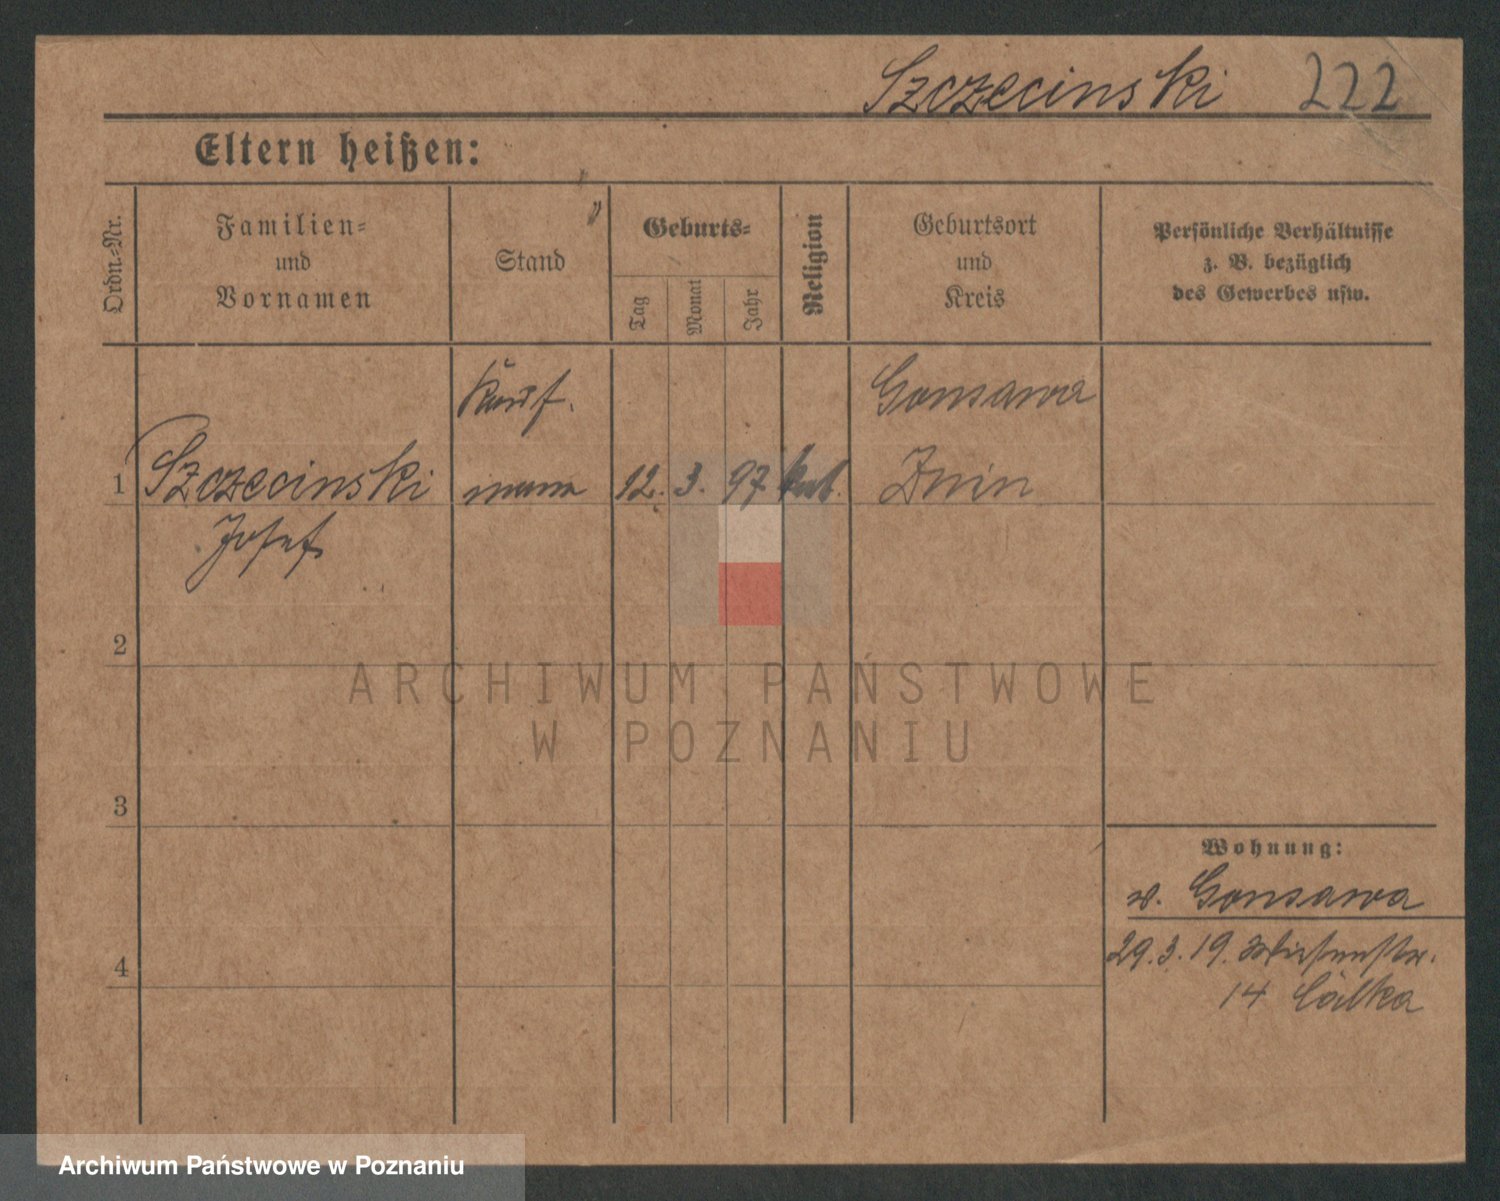 Szczecinski 222
Eltern heißen:
Ordn.-Nr.
Familien-
und
Vornamen
Stand
Geburts-
Tag
Monat
Jahr
Religion
Geburtsort
und
Kreis
Persönliche Verhältnisse
z. B. bezüglich
des Gewerbes usw.
Kauf-
Gonsawa
1 Szczecinski mann 12. 3. 97 kat. Znin
Josef
2
ARCHIWUM PAŃSTWOWE
W POZNANIU
3
Wohnung:
v. Gonsawa
29.3.19.
4
14
Archiwum Państwowe w Poznaniu